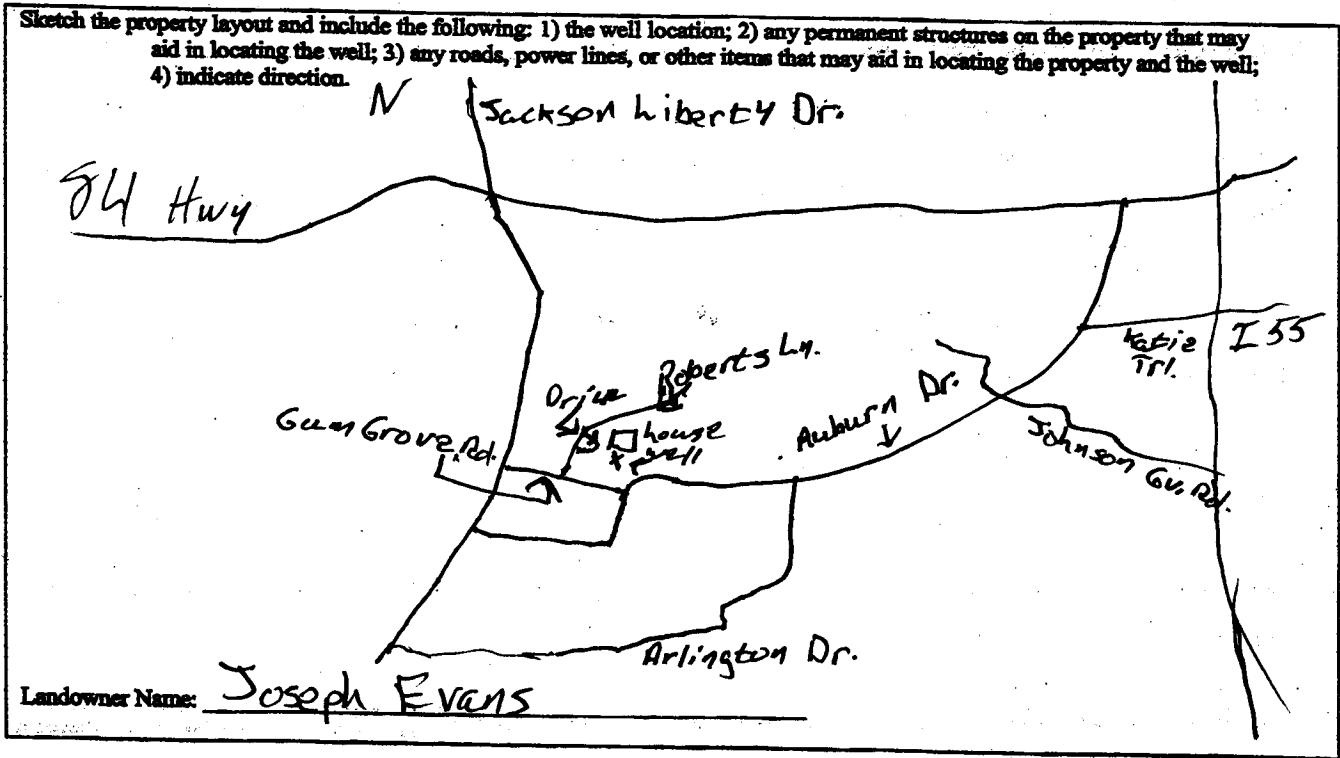 Sketch the property layout and include the following: 1) the well location; 2) any permanent structures on the property that may
aid in locating the well; 3) any roads, power lines, or other items that may aid in locating the property and the well;
4) indicate direction.
N
Jackson Liberty Dr.
84 Hwy
I 55
Katie
Trl.
Roberts Ln.
Drive
Auburn Dr.
Gum Grove Rd.
house
well
Johnson Gv. Rd.
Arlington Dr.
Landowner Name: Joseph Evans